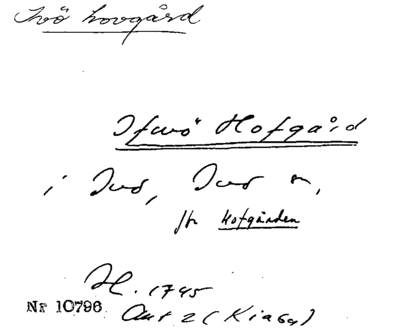 Ivö hovgård
Ifvö Hofgård
i Ivö, Ivö sn,
jfr Hofgården
H. 1745
Nr 10796
Akt 2 (Kiaby)